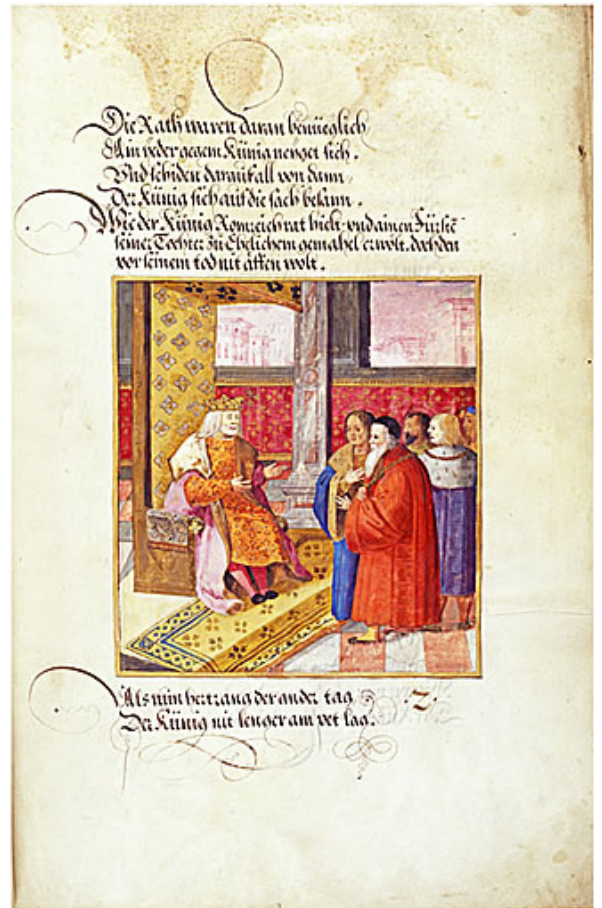 Die Räth waren daran benüeglich
Ain yeder gegem Künig neyget sich.
Vnd schiden darauf all von dann
Der Künig sich auf die sach besann.
Wie der Künig Romreich rat hielt. vnd ainen Fürstē
seiner Tochter zu Ehelichem gemahel erwölt. doch den
vor seinem tod nit äffen wolt.
Als nun hertrang der ander tag .2.
Der Künig nit lenger am pet lag.